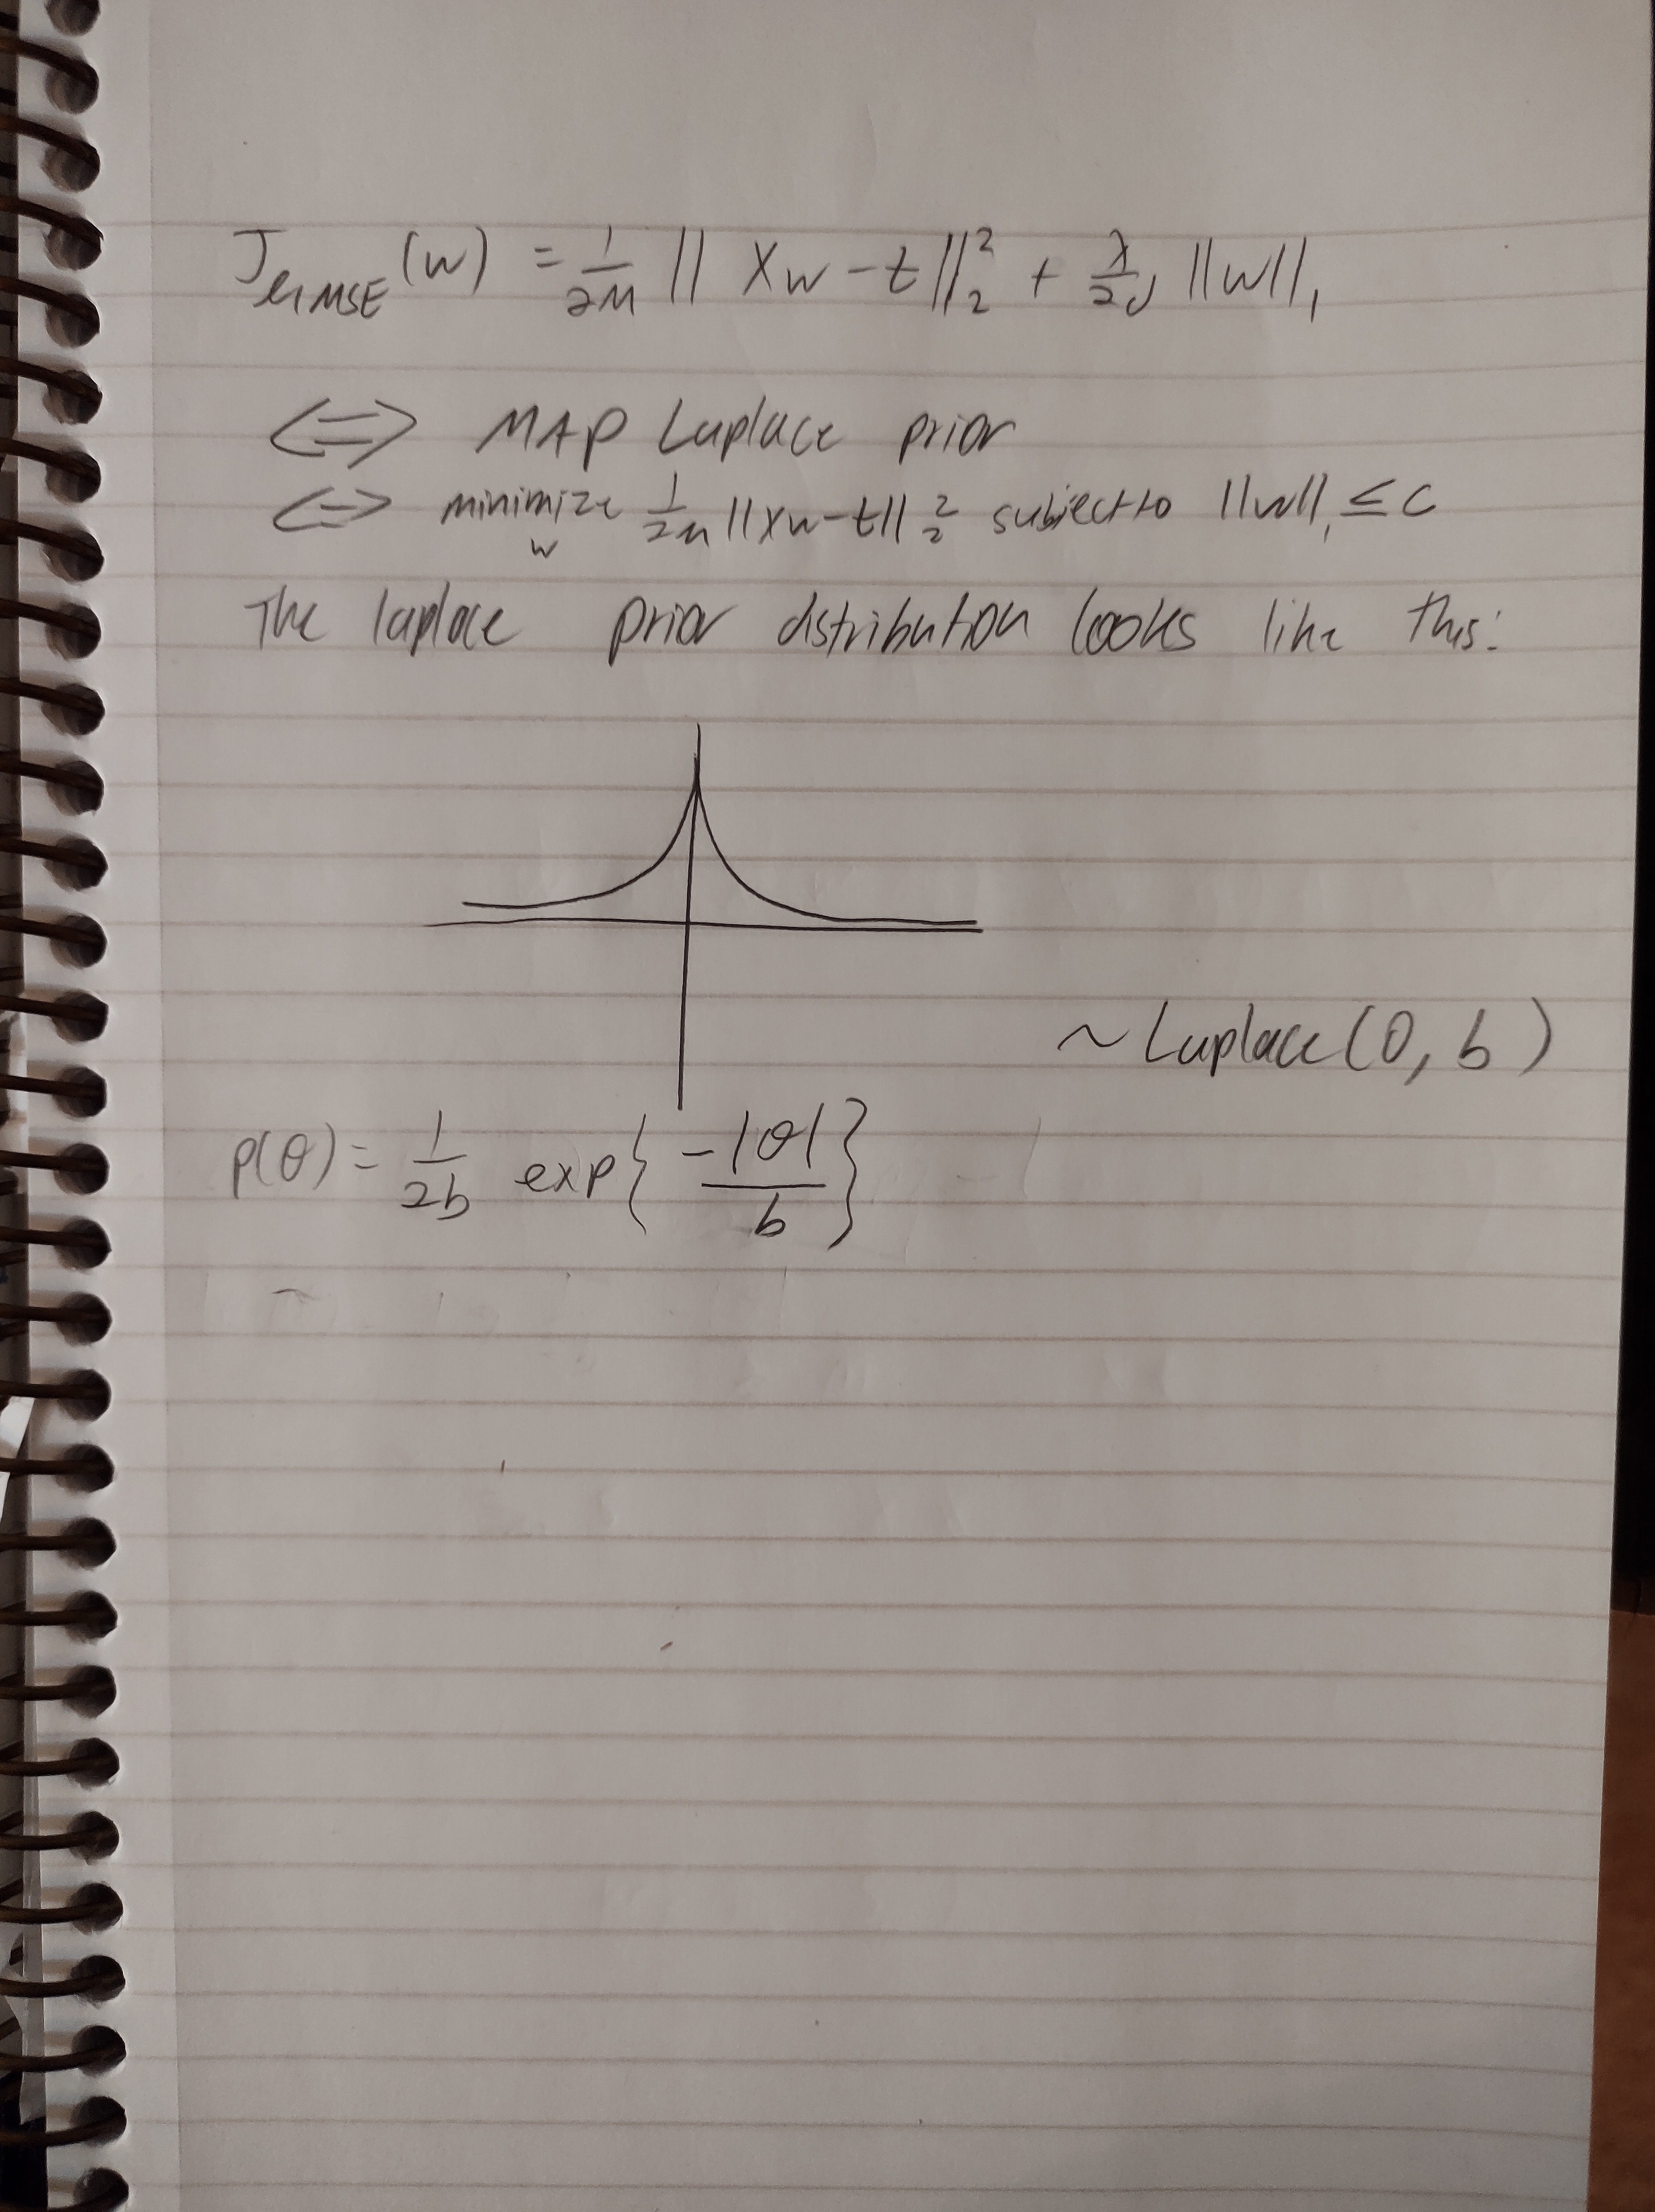 J_ℓ1MSE (w) = 1/2M || Xw - t ||₂² + λ/2J ||w||₁
<=> MAP Laplace prior
<=> minimize w 1/2M ||Xw-t||₂² subject to ||w||₁ ≤ C
The laplace prior distribution looks like this:
~ Laplace(0, b)
p(θ) = 1/2b exp{ -|θ|/b }